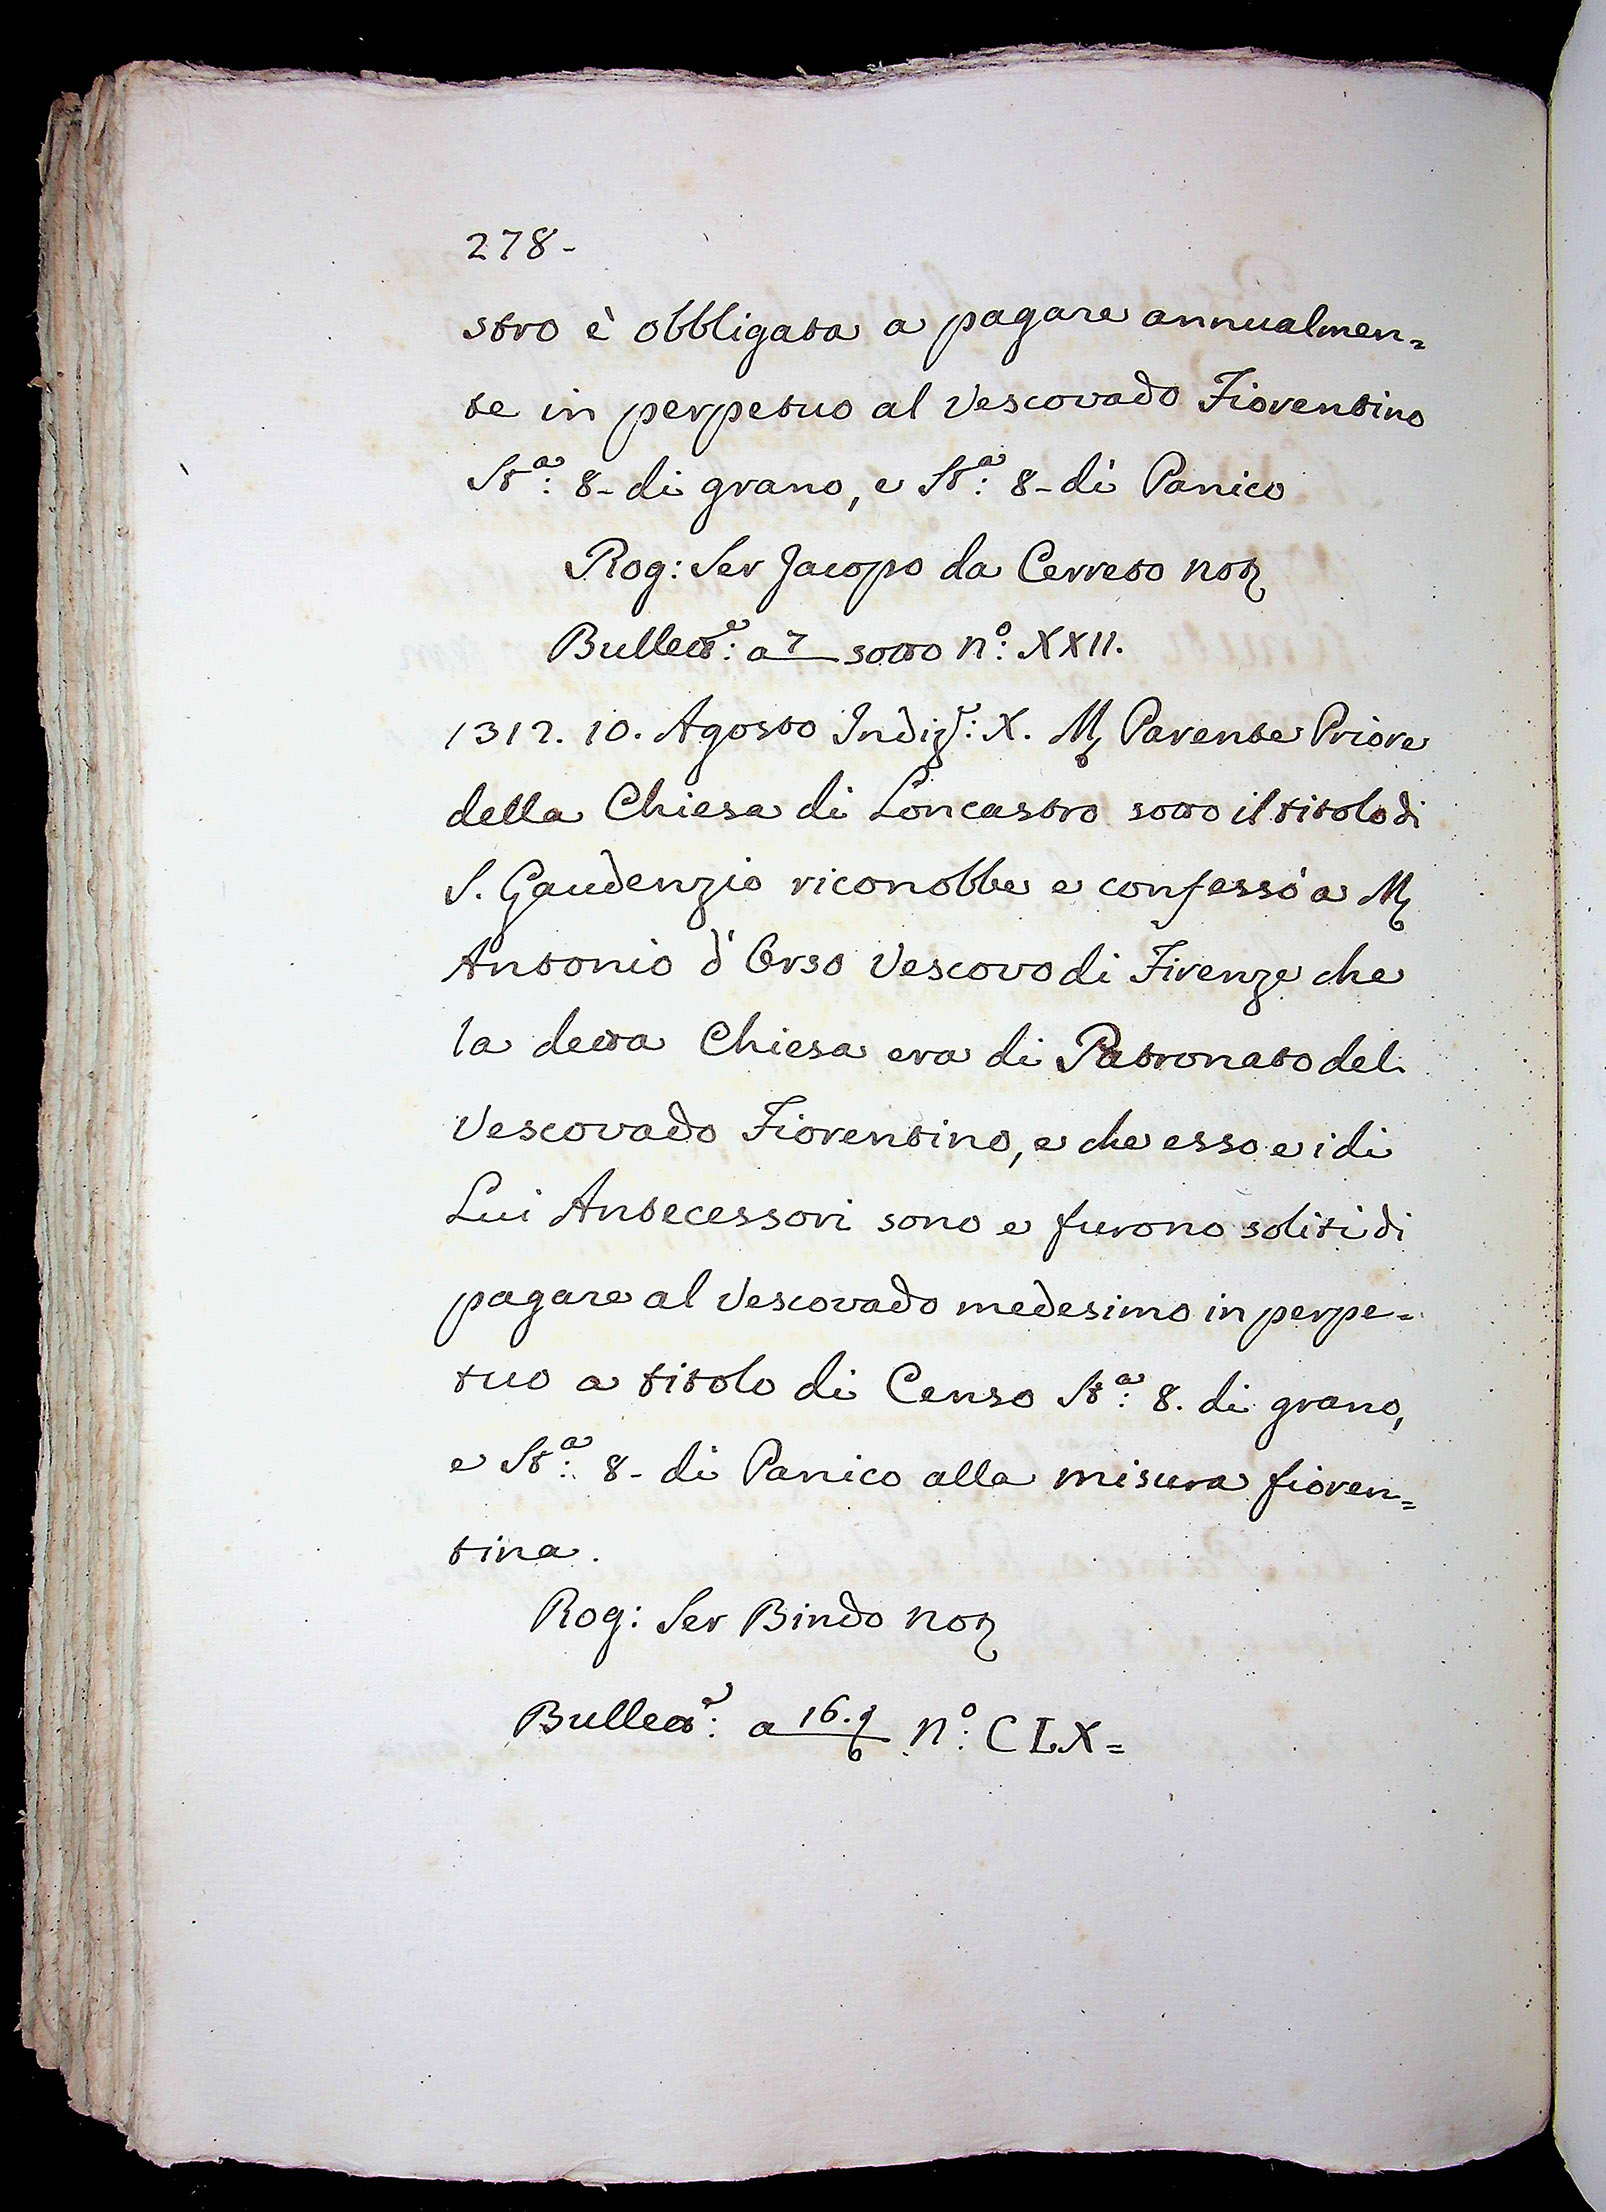 278-
stro è obbligata a pagare annualmen=
te in perpetuo al Vescovado Fiorentino
Stª: 8- di grano, e Stª: 8- di Panico
Rog: Ser Jacopo da Cerreto not
Bullettᵉ: a 7 sotto nº: XXII.
1312. 10. Agosto Indiz: X. M Parente Priore
della Chiesa di Loncastro sotto il titolo di
S. Gaudenzio riconobbe e confessò a M
Antonio d'Orso Vescovo di Firenze che
la detta Chiesa era di Patronato del
Vescovado Fiorentino, e che esso e i di
Lui Antecessori sono e furono soliti di
pagare al Vescovado medesimo in perpe=
tuo a titolo di Censo Stª: 8. di grano,
e Stª: 8- di Panico alla misura fioren=
tina.
Rog: Ser Bindo not
Bullettᵉ: a 16. nº: CLX=